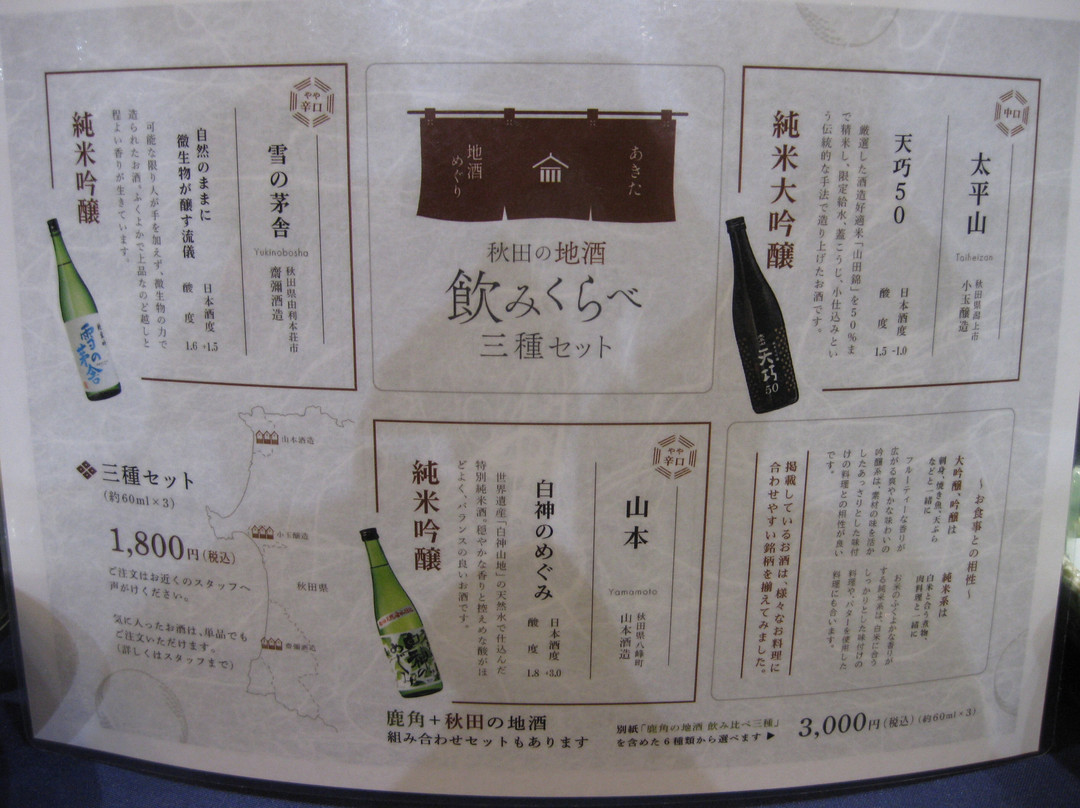 あきた
地酒
めぐり
秋田の地酒
飲みくらべ
三種セット
やや
辛口
雪の茅舎
Yukinobosha
秋田県由利本荘市
齋彌酒造
自然のままに
微生物が醸す流儀
日本酒度 +1.5
酸度 1.6
純米吟醸
可能な限り人が手を加えず、微生物の力で
造られたお酒。ふくよかで上品なのど越しと
程よい香りが生きています。
雪の茅舎
中口
太平山
Taiheizan
秋田県潟上市
小玉醸造
天巧50
日本酒度 -1.0
酸度 1.5
純米大吟醸
厳選した酒造好適米「山田錦」を50%ま
で精米し、限定給水、蓋こうじ、小仕込みとい
う伝統的な手法で造り上げたお酒です。
天巧
50
やや
辛口
山本
Yamamoto
秋田県八峰町
山本酒造
白神のめぐみ
日本酒度 +3.0
酸度 1.8
純米吟醸
世界遺産「白神山地」の天然水で仕込んだ
特別純米酒。穏やかな香りと控えめな酸がほ
どよく、バランスの良いお酒です。
山本酒造
小玉醸造
秋田県
齋彌酒造
三種セット
(約60ml×3)
1,800円(税込)
ご注文はお近くのスタッフへ
声がけください。
気に入ったお酒は、単品でも
ご注文いただけます。
(詳しくはスタッフまで)
~お食事との相性~
大吟醸、吟醸は
刺身、焼き魚、天ぷら
などと一緒に
フルーティーな香りが
広がる爽やかな味わいの
吟醸系は、素材の味を活か
したあっさりとした味付
けの料理との相性が良い
です。
純米系は
白米と合う煮物、
肉料理と一緒に
お米のふくよかな香りが
する純米系は、白米に合う
しっかりとした味付けの
料理や、バターを使用した
料理にも合います。
掲載しているお酒は、様々なお料理に
合わせやすい銘柄を揃えてみました。
鹿角+秋田の地酒
組み合わせセットもあります
別紙「鹿角の地酒 飲み比べ三種」
を含めた6種類から選べます▶
3,000円(税込)(約60ml×3)